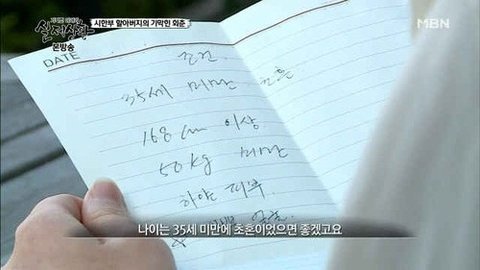 시한부 할아버지의 기막힌 회춘
MBN
실제상황
본방송
DATE
조건
35세 미만 초혼
168cm 이상
50kg 미만
하얀 피부
나이는 35세 미만에 초혼이었으면 좋겠고요